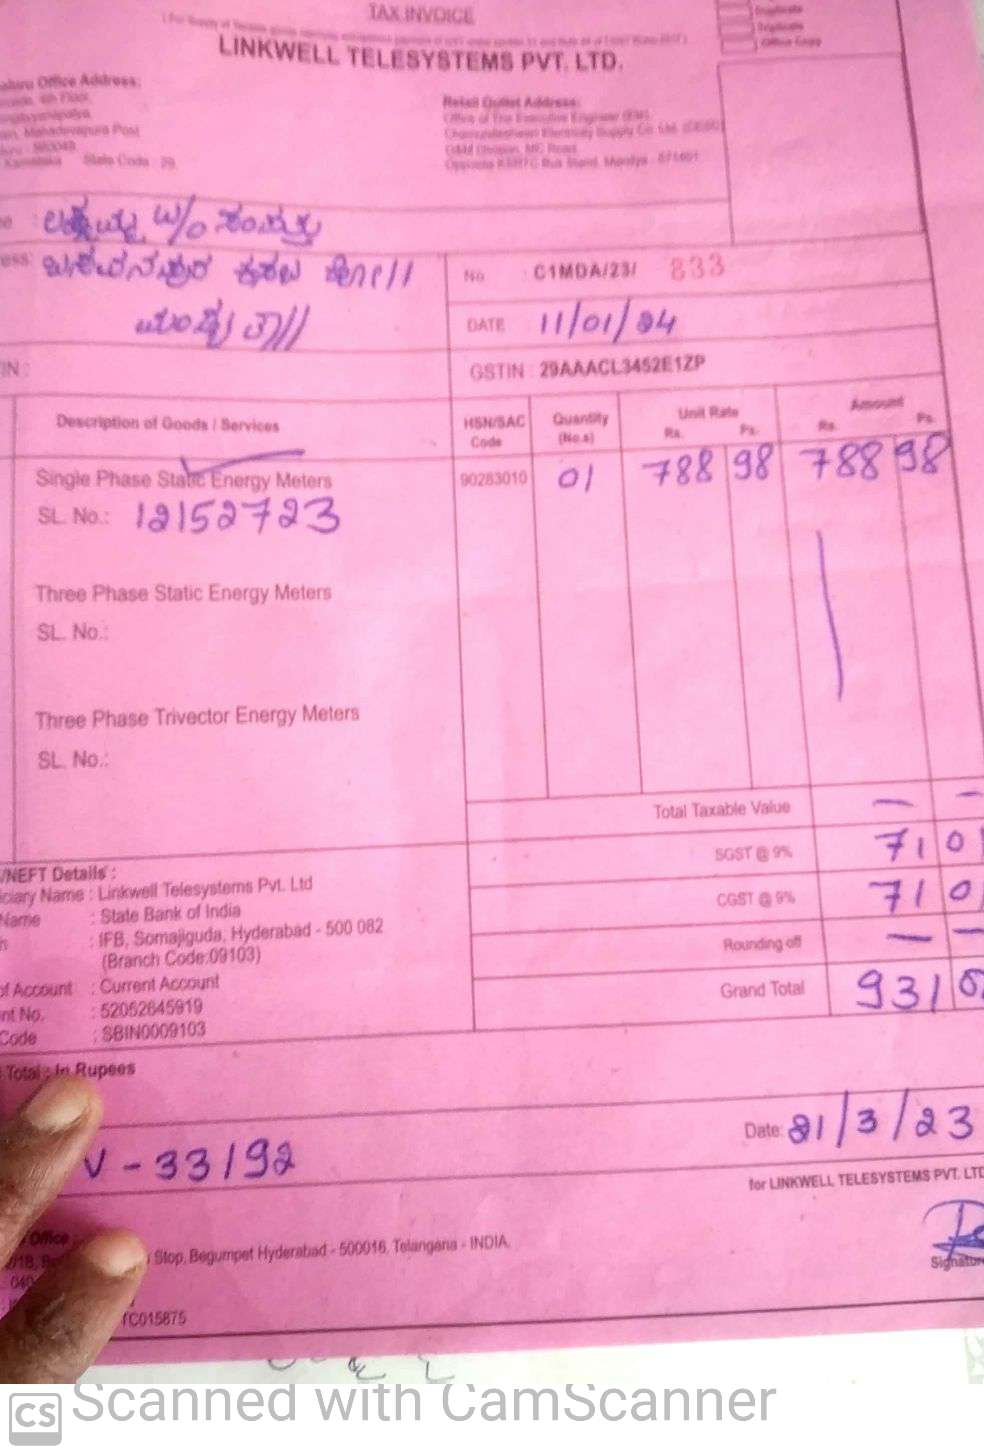 TAX INVOICE
LINKWELL TELESYSTEMS PVT. LTD.
Office Address:
Mahadevapura Post
Karnataka State Code : 29
Retail Outlet Address:
Office of The Executive Engineer (Ele)
Chamundeshwari Electricity Supply Co. Ltd.
O&M Division, MC Road
Opposite KSRTC Bus Stand, Mandya - 571401
Duplicate
Triplicate
Office Copy
W/o
No : C1MDA/23/ 833
DATE 11/01/24
GSTIN : 29AAACL3452E1ZP
Description of Goods / Services HSN/SAC Code Quantity (No.s) Unit Rate Rs. Ps. Amount Rs. Ps.
Single Phase Static Energy Meters 90283010 01 788 98 788 98
SL. No.: 12152723
Three Phase Static Energy Meters
SL. No.:
Three Phase Trivector Energy Meters
SL. No.:
Total Taxable Value — —
SGST @ 9% 71 01
CGST @ 9% 71 01
Rounding off — —
Grand Total 931
/NEFT Details :
ciary Name : Linkwell Telesystems Pvt. Ltd
Name : State Bank of India
: IFB, Somajiguda, Hyderabad - 500 082
(Branch Code:09103)
of Account : Current Account
nt No. : 52052645919
Code : SBIN0009103
Total : In Rupees
V - 33/92
Date: 21/3/23
for LINKWELL TELESYSTEMS PVT. LTD
Signature
Office :
Stop, Begumpet Hyderabad - 500016, Telangana - INDIA.
TC015875
CS Scanned with CamScanner